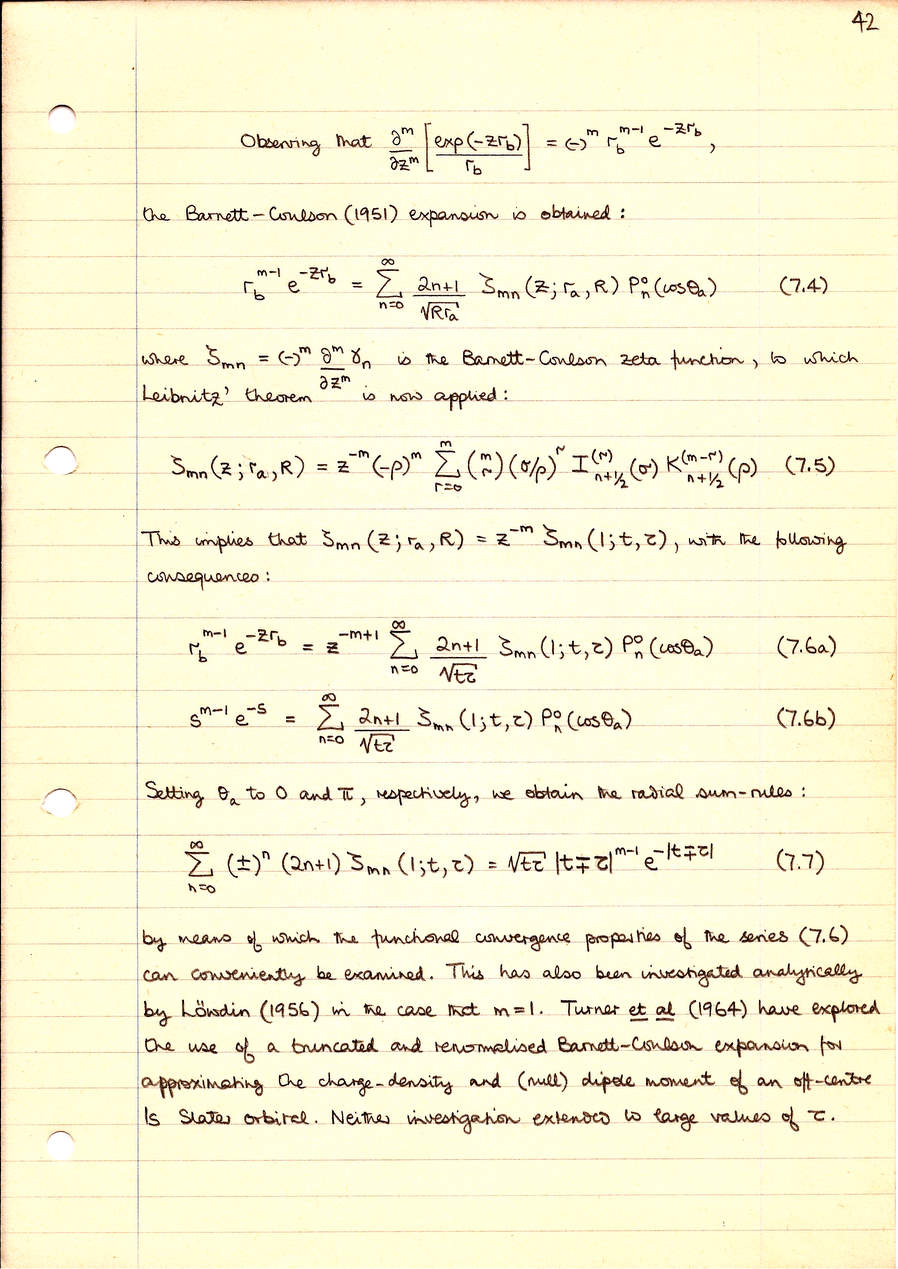 42
Observing that ∂ᵐ/∂zᵐ [exp(-zr_b)/r_b] = (-)ᵐ r_b^{m-1} e^{-zr_b},
the Barnett-Coulson (1951) expansion is obtained:
r_b^{m-1} e^{-zr_b} = Σ_{n=0}^{∞} (2n+1)/√(Rr_a) ζ_{mn}(z; r_a, R) P_n^0(cosθ_a) (7.4)
where ζ_{mn} = (-)ᵐ ∂ᵐ/∂zᵐ γ_n is the Barnett-Coulson zeta function, to which
Leibnitz' theorem is now applied:
ζ_{mn}(z; r_a, R) = z^{-m} (-ρ)^m Σ_{r=0}^{m} (m r) (σ/ρ)^r I_{n+1/2}^{(r)}(σ) K_{n+1/2}^{(m-r)}(ρ) (7.5)
This implies that ζ_{mn}(z; r_a, R) = z^{-m} ζ_{mn}(1; t, τ), with the following
consequences:
r_b^{m-1} e^{-zr_b} = z^{-m+1} Σ_{n=0}^{∞} (2n+1)/√(tτ) ζ_{mn}(1; t, τ) P_n^0(cosθ_a) (7.6a)
s^{m-1} e^{-s} = Σ_{n=0}^{∞} (2n+1)/√(tτ) ζ_{mn}(1; t, τ) P_n^0(cosθ_a) (7.6b)
Setting θ_a to 0 and π, respectively, we obtain the radial sum-rules:
Σ_{n=0}^{∞} (±)^n (2n+1) ζ_{mn}(1; t, τ) = √(tτ) |t∓τ|^{m-1} e^{-|t∓τ|} (7.7)
by means of which the functional convergence properties of the series (7.6)
can conveniently be examined. This has also been investigated analytically
by Löwdin (1956) in the case that m=1. Turner et al (1964) have explored
the use of a truncated and renormalised Barnett-Coulson expansion for
approximating the charge-density and (null) dipole moment of an off-centre
1s Slater orbital. Neither investigation extended to large values of τ.